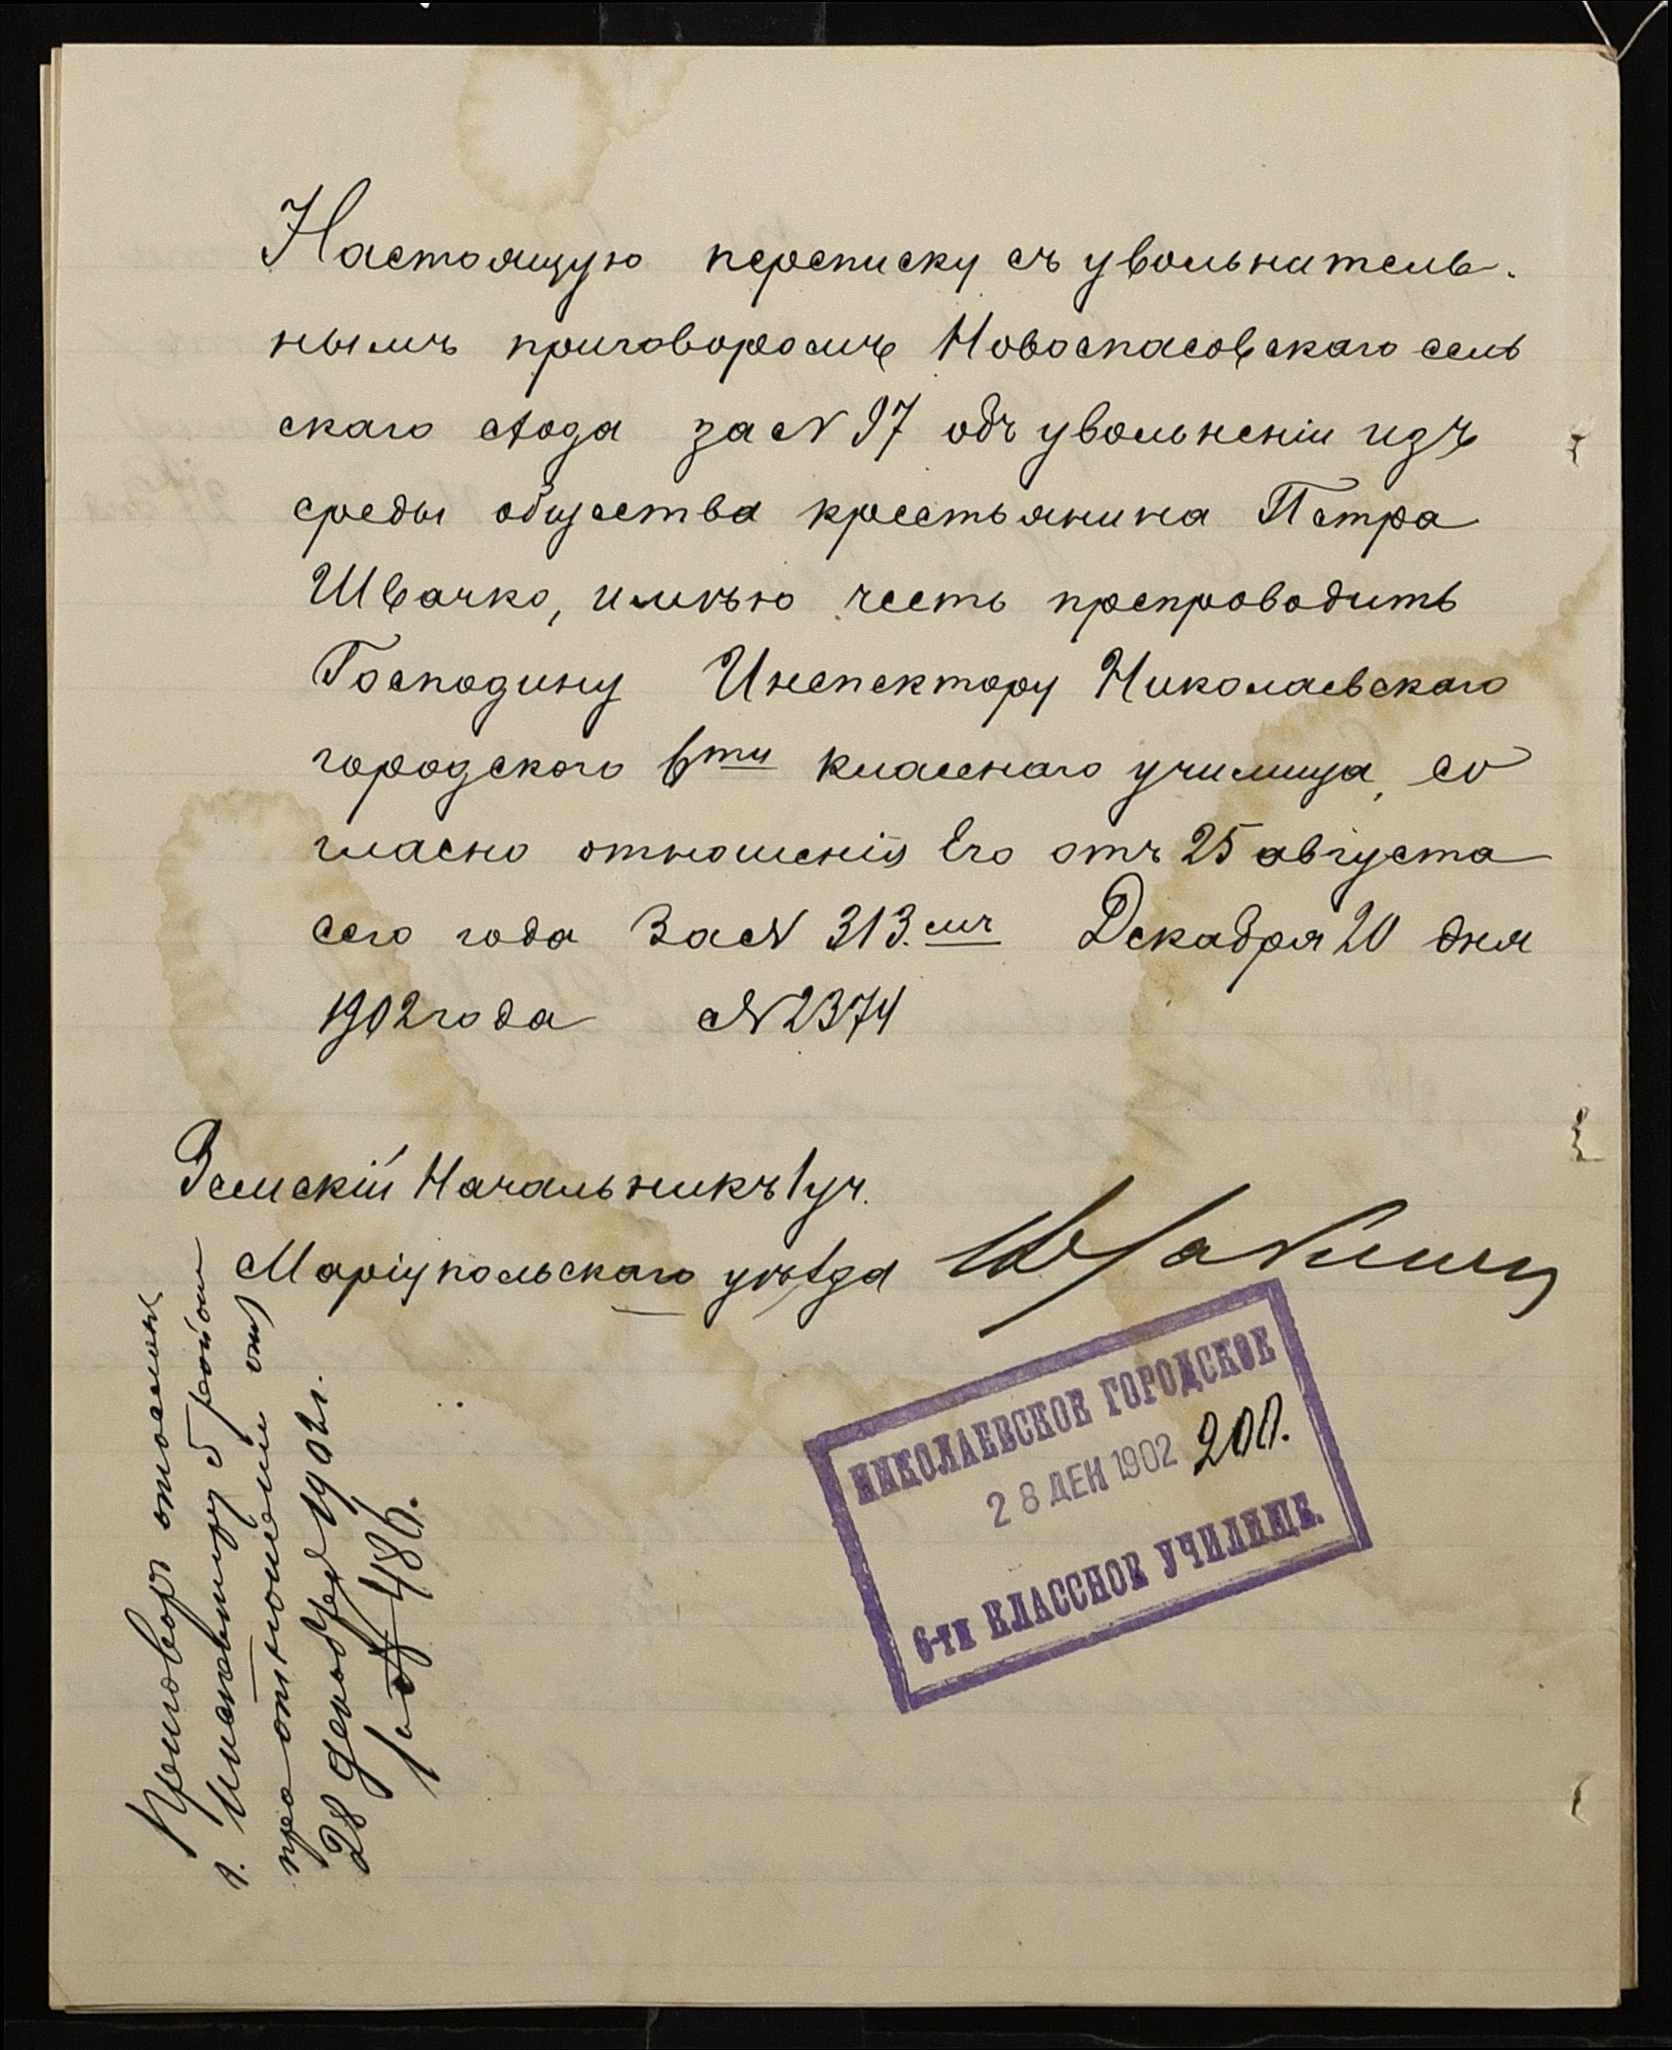 Настоящую переписку съ увольнитель-
нымъ приговоромъ Новоспасовскаго сель
скаго схода за № 97 объ увольненіи изъ
среды общества крестьянина Петра
Швачко, имѣю честь препроводить
Господину Инспектору Николаевскаго
городского 6ти класснаго училища, со
гласно отношенія Его отъ 25 августа
сего года За № 313.мъ Декабря 20 дня
1902 года № 2374
Земскій Начальникъ 1 уч.
Маріупольскаго уѣзда
НИКОЛАЕВСКОЕ ГОРОДСКОЕ
28 ДЕК 1902 200.
6-ТИ КЛАССНОЕ УЧИЛИЩЕ.
Приговоръ отосланъ
г. Инспектору 5 района
при отношеніи отъ
28 декабря 1902 г.
за № 486.